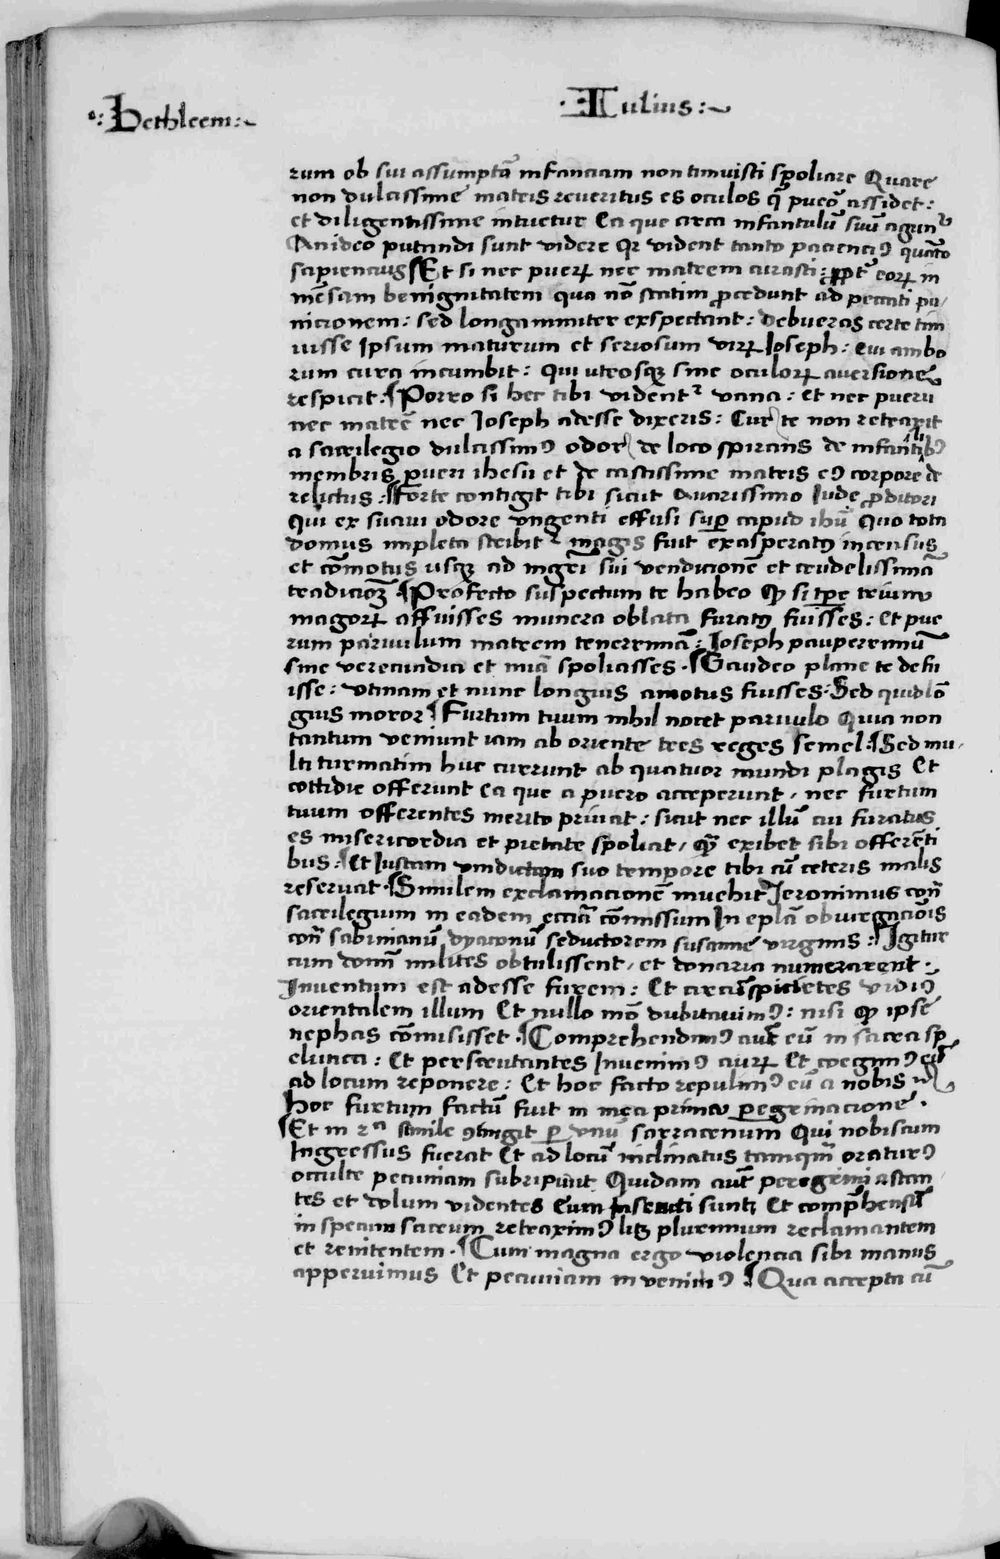 Bethleem:~
·Iulius:~
rum ob sui assūmptā infanciam non timuisti spoliare Quare
non dulcissime matris reueritus es oculos q̄ pueō assidet:
et diligentissime intuetur Ea que circa infantulū suū agunͭ
An ideo putandi sunt videre qr vident tanto pacienciꝰ quāto
sapiencius Et si nec puerꝝ nec matrem curasti: ꝓpt̄ eorꝝ in
mēsam benignitatem qua nō statim ꝓcedunt ad peccati pu/
nicionem: sed longanimiter exspectant: debueras certe tim
uisse Ipsum maturum et seriosum virꝝ Ioseph: Cui ambo
rum cura incumbit: Qui utrosqꝫ sine oculorꝝ auersione
respicit: Porro si hec tibi videntͬ vana: Et nec puerū
nec matrē nec Ioseph adesse dixeris: Cur te non retraxit
a sacrilegio dulcissimꝰ odor de loco spirans de infantilibꝰ
membris pueri ihesu et de castissime matris eiꝰ corpore de
relictus: Forte contigit tibi sicut Auarissimo Iude ꝓditori
Qui ex suaui odore vngenti effusi suꝑ capud ihū Quo tota
domus impleta scribitͬ magis fuit exasperatꝰ incensus
et cōmotus usqꝫ ad mgrī sui vendicionē et crudelissimā
tradicioꝫ Profecto suspectum te habeo ꝙ si tꝑe trium
magorꝝ affuisses munera oblata furatꝰ fuisses: Et pue
rum paruulum matrem tenerrimā: Ioseph pauperrimū
sine verecundia et mīa spoliasses. Gaudeo plane te defu
isse: vtinam et nunc longius amotus fuisses: Sed quid lō
gius moror Furtum tuum nihil nocet paruulo Quia non
tantum veniunt iam ab oriente tres reges semel: Sed mu/
lti turmatim huc currunt ab quatuor mundi plagis Et
cottidie offerunt Ea que a puero acceperunt, nec furtum
tuum offerentes merito priuat: sicut nec illū cui furatus
es misericordia et pietate spoliat, Quā exibet sibi offerēti
bus: Et Iustam vindictam suo tempore tibi cū ceteris malis
reseruat. Similem exclamacionē inuehit Ieronimus con̄
sacrilegium in eadem ecciā cōmissum In eplā obiurgaciōis
con̄ sabinianū dyaconū seductorem susanne virginis: Igitur
cum domī milites obtulissent, et donaria numerarent.
Inuentum est adesse furem: Et circūspicientes vidimꝰ
orientalem illum Et nullo mō dubitauimꝰ: nisi ꝙ ipse
nephas cōmisisset. Comprehendimꝰ autē eū in sacra sp
elunca: Et perscrutantes Inuenimꝰ aurꝝ Et coegimꝰ eū
ad locum reponere: Et hoc facto repulimꝰ eū a nobis
hoc furtum factū fuit in mea prima ꝑegrinacione.
Et in 2ª simile ꝯtingit ꝑ vnū sarracenum Qui nobiscum
Ingressus fuerat Et ad locū inclinatus tamqm̄ oraturꝰ
occulte pecuniam subripuit Quidam autē peregrini astan
tes et dolum videntes Eum insecuti suntꝫ Et comp̄hensū
in specum sacrum retraximꝰ licꝫ plurimum reclamantem
et renitentem. Cum magna ergo violencia sibi manus
apperuimus Et pecuniam invenimꝰ Qua accepta cū